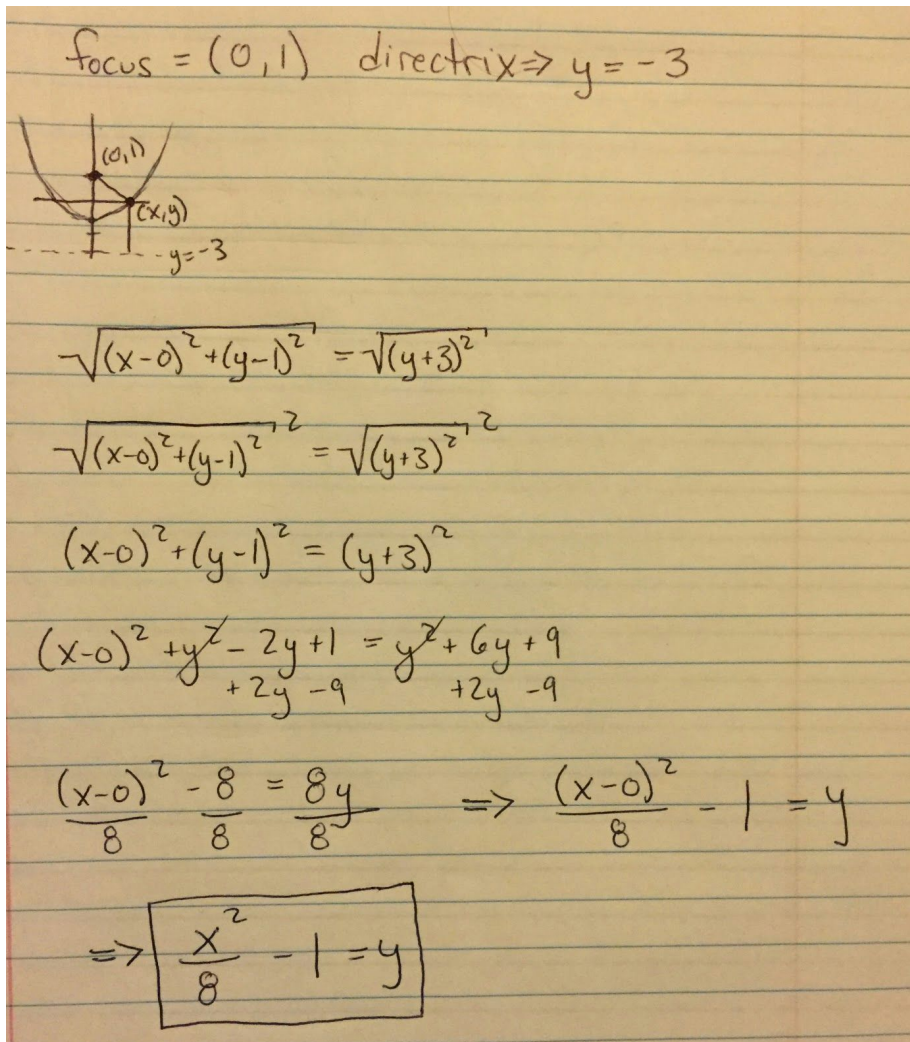 focus = (0,1) directrix⇒ y = -3
(0,1)
(x,y)
y=-3
√((x-0)²+(y-1)²) = √((y+3)²)
√((x-0)²+(y-1)²)² = √((y+3)²)²
(x-0)²+(y-1)² = (y+3)²
(x-0)² +y² - 2y+1 = y² + 6y + 9
+2y -9 +2y -9
(x-0)²/8 - 8/8 = 8y/8 ⇒ (x-0)²/8 - 1 = y
⇒ x²/8 - 1 = y